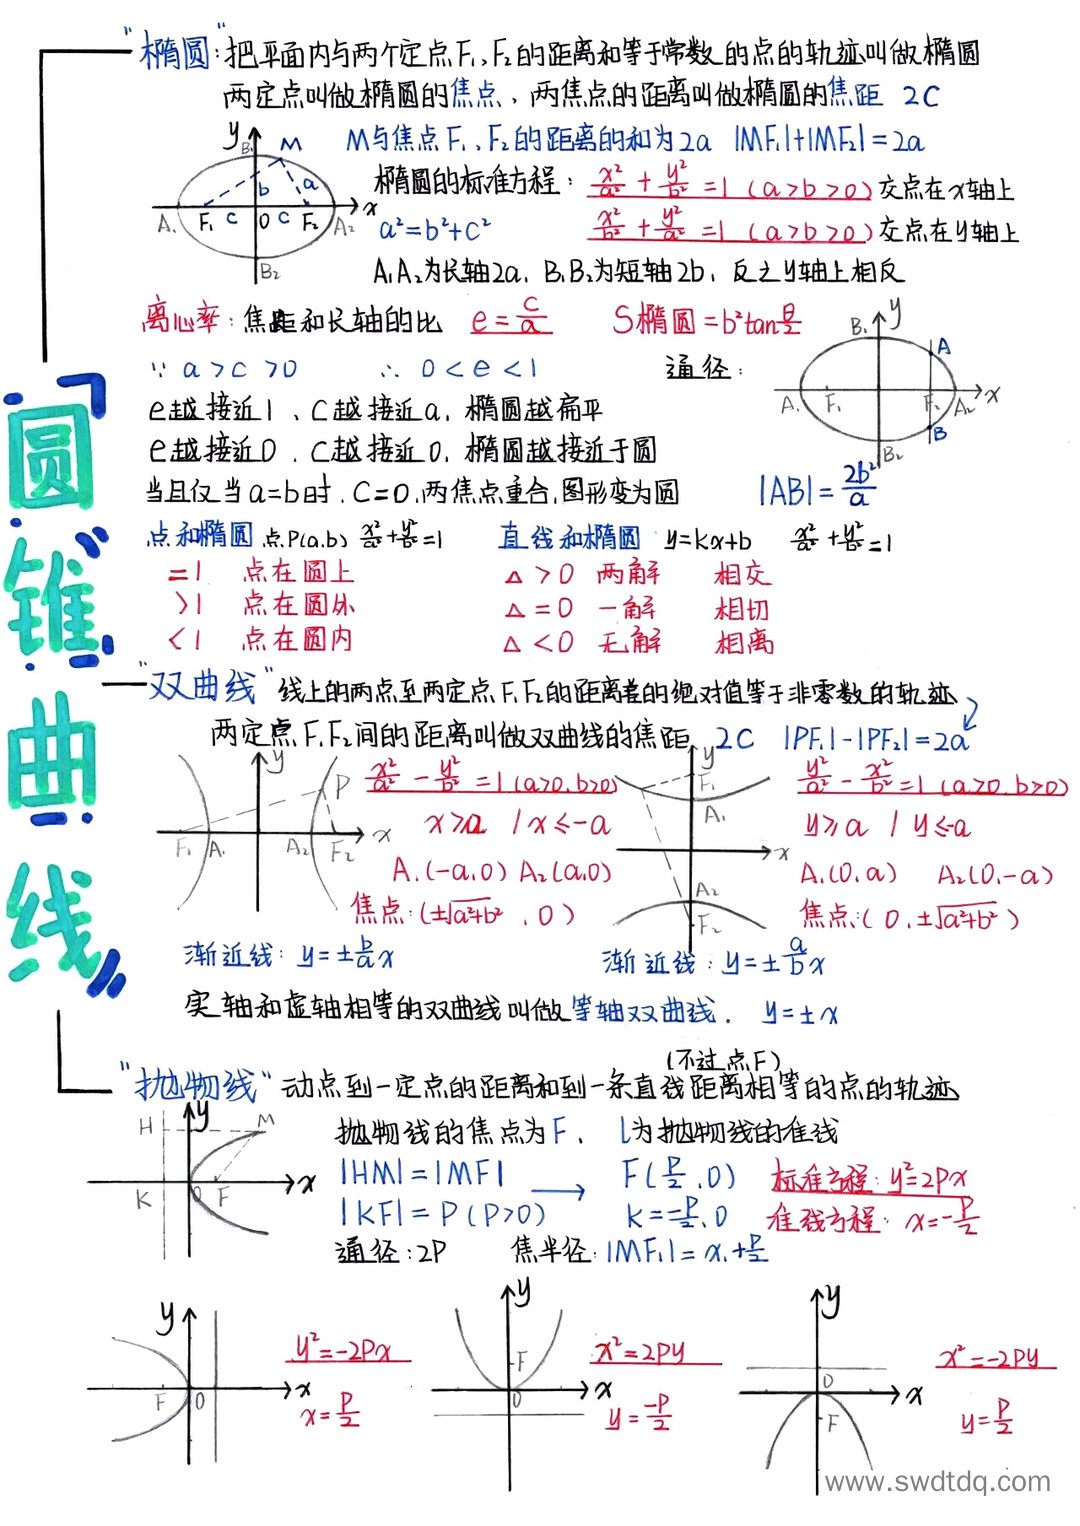 圆锥曲线
"椭圆":把平面内与两个定点F₁、F₂的距离和等于常数的点的轨迹叫做椭圆
两定点叫做椭圆的焦点、两焦点的距离叫做椭圆的焦距 2C
M与焦点F₁、F₂的距离的和为2a |MF₁|+|MF₂|=2a
y B₁ M b a A₁ F₁ c O c F₂ A₂ x B₂
椭圆的标准方程: x²/a² + y²/b² =1 (a>b>0) 交点在x轴上
a²=b²+c² x²/b² + y²/a² =1 (a>b>0) 交点在y轴上
A₁A₂为长轴2a, B₁B₂为短轴2b, 反之y轴上相反
离心率:焦距和长轴的比 e=c/a S椭圆=b²tanθ/2
∵ a>c>0 ∴ 0<e<1 通径:
B₁ y A A₁ F₁ F₂ A₂ x B B₂
e越接近1、c越接近a,椭圆越扁平
e越接近0、c越接近0,椭圆越接近于圆
当且仅当a=b时,C=0,两焦点重合,图形变为圆 |AB|=2b²/a
点和椭圆 点P(a,b) x²/a²+y²/b²=1 直线和椭圆 y=kx+b x²/a²+y²/b²=1
=1 点在圆上 △>0 两解 相交
>1 点在圆外 △=0 一解 相切
<1 点在圆内 △<0 无解 相离
"双曲线"线上的两点至两定点F₁F₂的距离差的绝对值等于非零数的轨迹
两定点F₁F₂间的距离叫做双曲线的焦距 2C |PF₁|-|PF₂|=2a
y P F₁ A₁ A₂ F₂ x
x²/a² - y²/b² =1 (a>0,b>0)
x≥a / x≤-a
A₁(-a,0) A₂(a,0)
焦点:(±√a²+b² , 0)
渐近线: y=±b/a x
y F₁ A₁ x A₂ F₂
y²/a² - x²/b² =1 (a>0,b>0)
y≥a / y≤-a
A₁(0,a) A₂(0,-a)
焦点:(0,±√a²+b²)
渐近线: y=±a/b x
实轴和虚轴相等的双曲线叫做等轴双曲线. y=±x
(不过点F)
"抛物线"动点到一定点的距离和到一条直线距离相等的点的轨迹
H y M K O F x
抛物线的焦点为F, l为抛物线的准线
|HM|=|MF| F(P/2,0) 标准方程:y²=2Px
|KF|=P(P>0) K=-P/2,0 准线方程: x=-P/2
通径:2P 焦半径:|MF₁|=x₁+P/2
y F O x
y²=-2Px
x=P/2
y F O x
x²=2Py
y=-P/2
y O x F
x²=-2Py
y=P/2
www.swdtdq.com